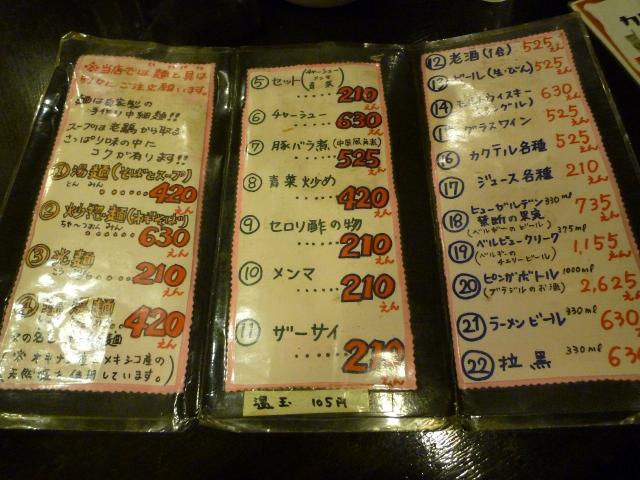 当店では麺と具は
別々にご注文願います。
麺は自家製の
手作り中細麺!!
スープは老鶏から取る
さっぱり味の中に
コクが有ります!!
①湯麺(そばとスープ)
たん みん
420えん
②
630
えん
③光麺
210
えん
④
420
えん
メキシコ産の
天然塩を使用しています。)
⑤セット(チャーシュー メンマ 青菜)
210
えん
⑥チャーシュー
630
えん
⑦豚バラ煮(中国風角煮)
525
えん
⑧青菜炒め
420
えん
⑨セロリ酢の物
210
えん
⑩メンマ
210
えん
⑪ザーサイ
210
えん
温玉 105円
⑫老酒(1合) 525えん
⑬ビール(生・びん) 525えん
⑭モルトウィスキー
(シングル)
630えん
⑮グラスワイン 525えん
⑯カクテル各種 525えん
⑰ジュース各種 210えん
⑱ヒューガルデン 330ml
禁断の果実
(ベルギーのビール)
735えん
⑲ベルビュークリーク 375ml
(ベルギーのチェリービール)
1,155えん
⑳ピンガボトル 1000ml
(ブラジルのお酒)
2,625えん
㉑ラーメンビール 330ml 630
㉒拉黒 330ml 63